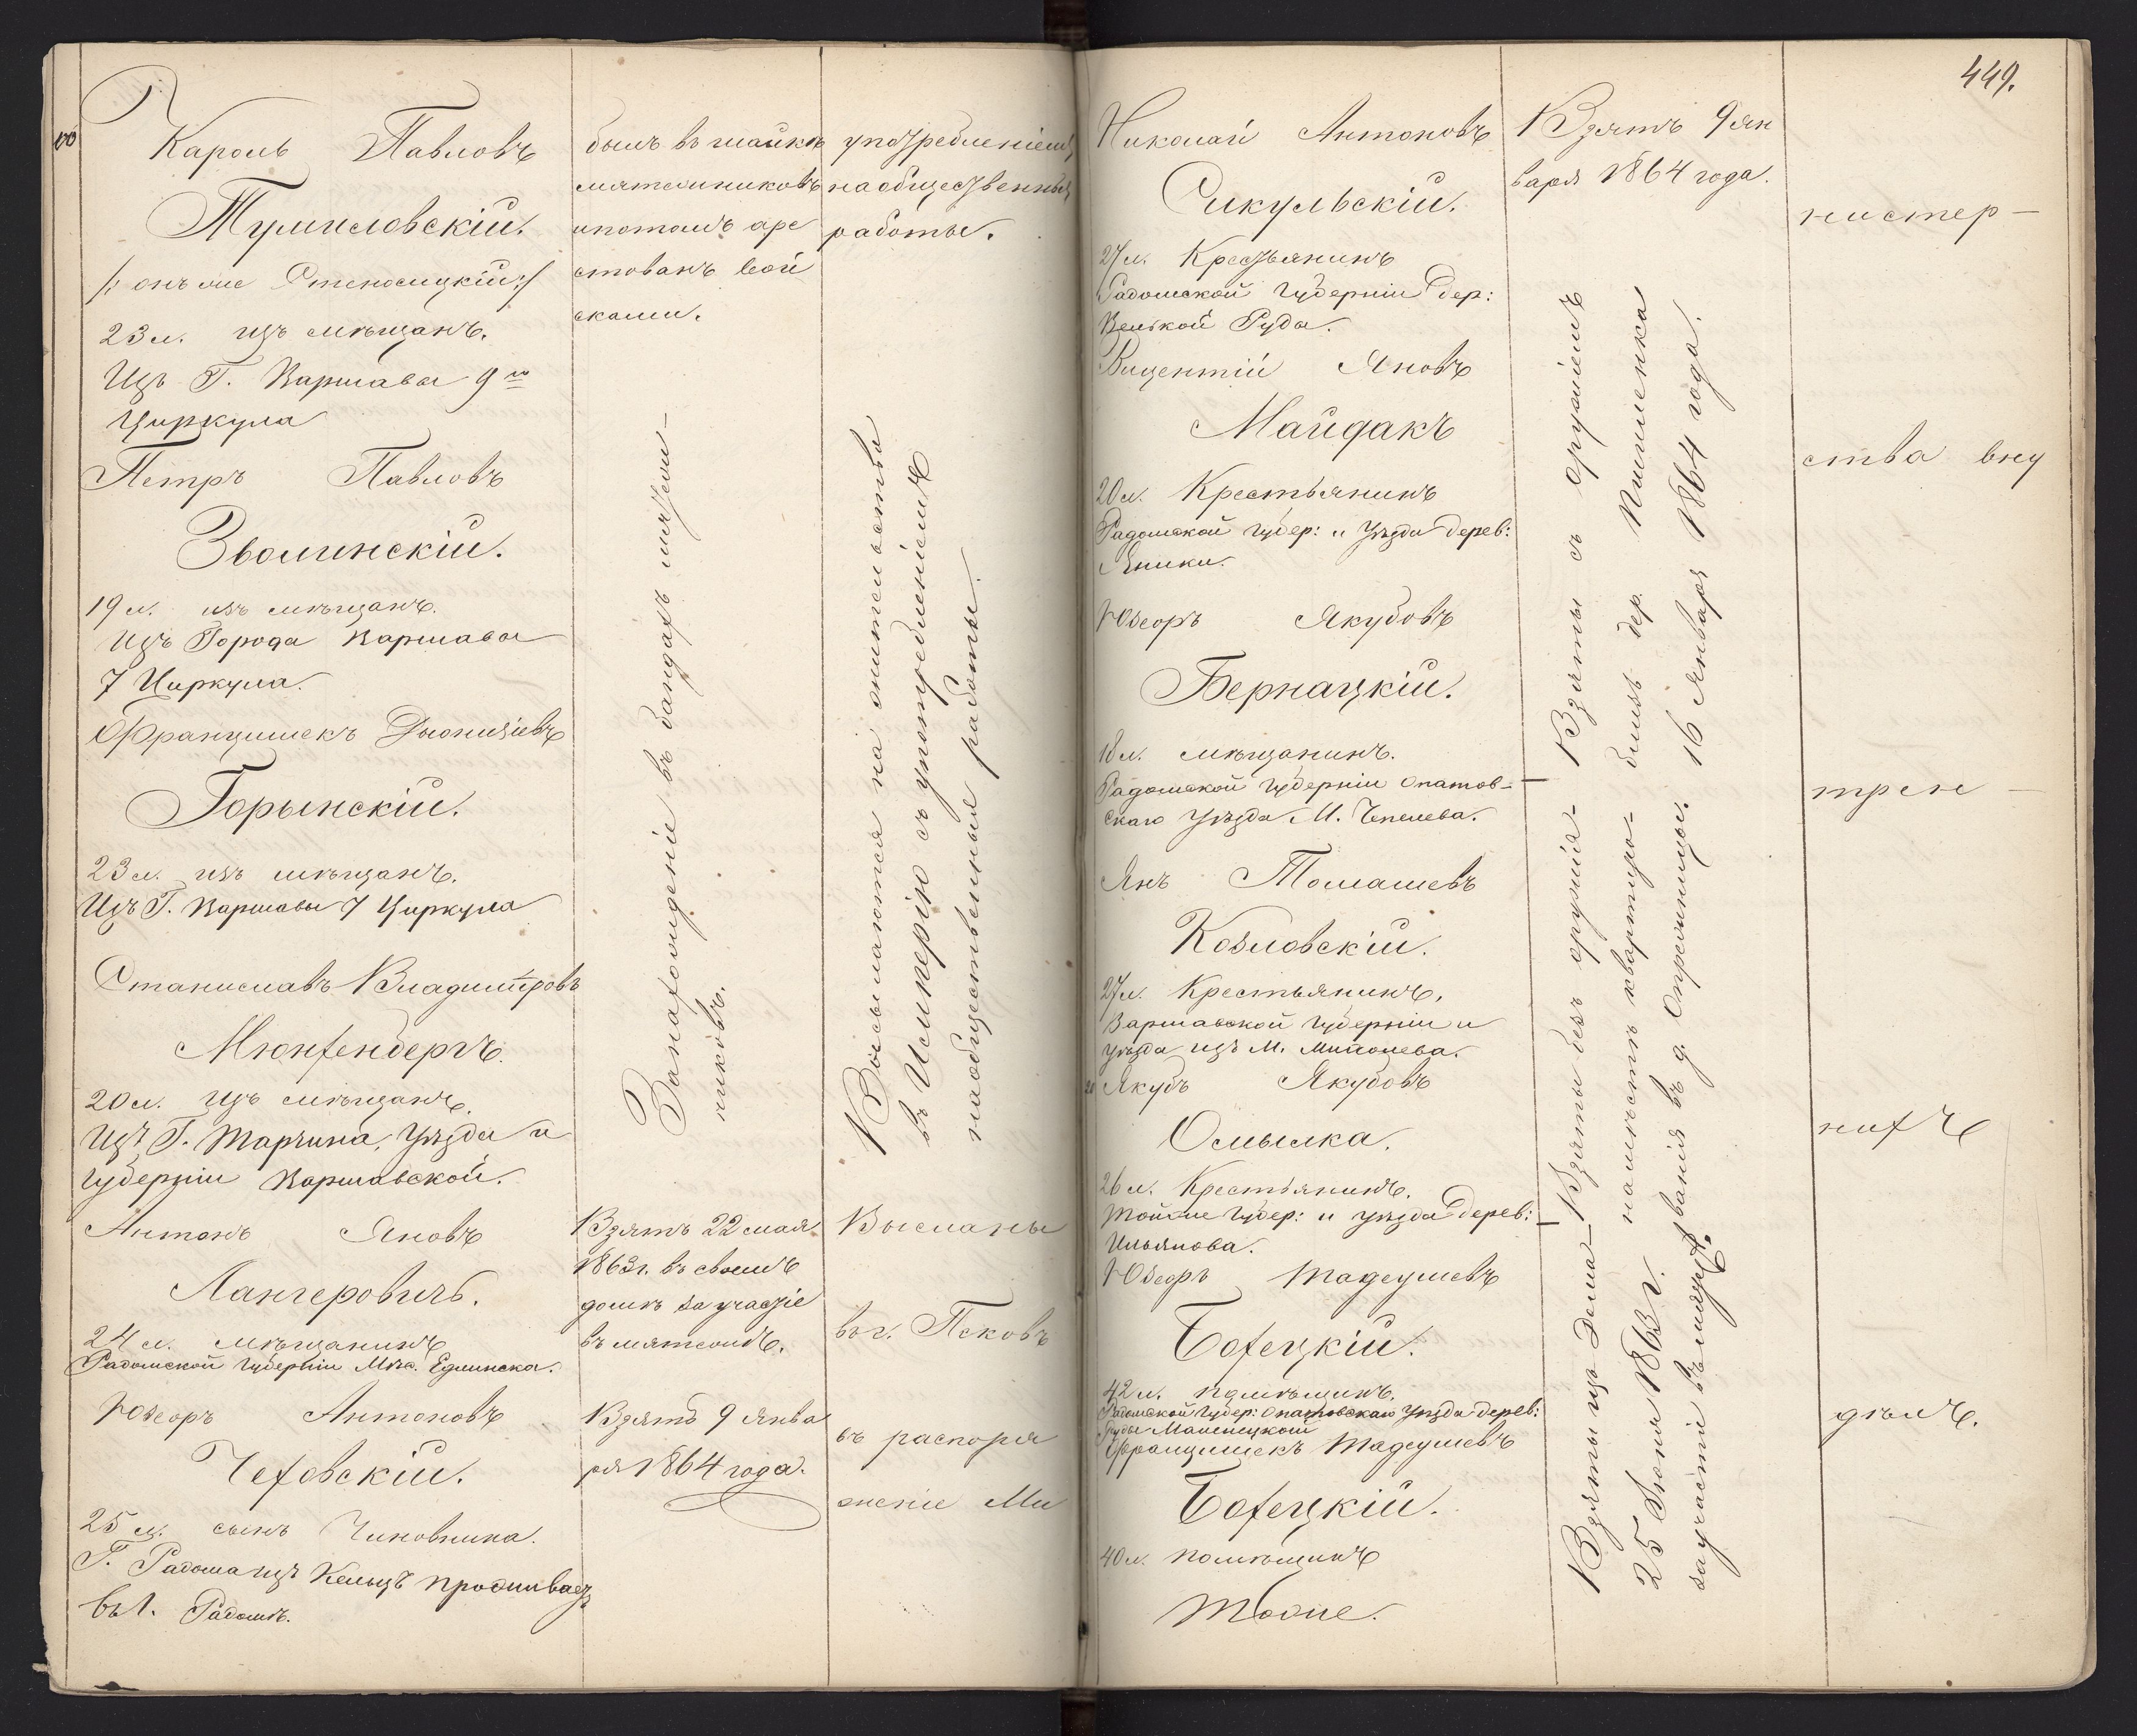 449.
Кароль Павловъ
Тумиловскій.
/: онъ же :/
23 л. изъ мѣщанъ.
Изъ Г. Варшавы 9го
Циркула
Петръ Павловъ
Зволинскій.
19 л. изъ мѣщанъ.
Изъ Города Варшавы
7 Циркула.
Францишекъ Діонизіевъ
Горынскій.
23 л. изъ мѣщанъ.
Изъ Г. Варшавы 7 Циркула
Станиславъ Владиміровъ
Мюнхенбергъ.
20 л. Изъ мѣщанъ.
Изъ Г. Тарчина, Уѣзда и
Губерніи Варшавской.
Антонъ Яновъ
Лангеровичъ.
24 л. мѣщанинъ
Радомской Губерніи Мѣс. Едлинска.
Юзефъ Антоновъ
Чеховскій.
25 л. сынъ Чиновника.
Г. Радома изъ Кельцъ проживаетъ
въ г. Радомѣ.
былъ въ шайкѣ
мятежниковъ
и потомъ аре
стованъ вой
сками.
За нахожденіе въ бандахъ мятеж-
никовъ.
Взятъ 22 мая
1863 г. въ своемъ
домѣ за участіе
въ мятежѣ.
Взятъ 9 Янва
ря 1864 года.
употребленіемъ
на общественныя
работы.
Высылаются на жительство
въ Имперію съ употребленіемъ
на общественныя работы.
Высланы
въ г. Псковъ
въ распоря
женіе Ми
Николай Антоновъ
Сикульскій.
27 л. Крестьянинъ
Радомской Губерніи дер:
Велькой Руда.
Вицентій Яновъ
Майдакъ
20 л. Крестьянинъ
Радомской Губер: и Уѣзда дерев:
Юзефъ Якубовъ
Бернацкій.
18 л. мѣщанинъ.
Радомской Губерніи Опатов-
скаго Уѣзда М. Чепелева.
Янъ Томашевъ
Козловскій.
27 л. Крестьянинъ.
Варшавской Губерніи и
уѣзда изъ М.
Якубъ Якубовъ
Смылка.
26 л. Крестьянинъ.
Тойже Губер: и уѣзда дерев:
Ильянова.
Юзефъ Тадеушевъ
Бохецкій.
42 л. помѣщикъ.
Радомской Губер: Опатовскаго Уѣзда дерев:
Руды
Францишекъ Тадеушевъ
Бохецкій.
40 л. помѣщикъ
Тоже.
Взятъ 9 Ян
варя 1864 года.
Взяты съ оружіемъ
близъ дер.
16 Января 1864 года.
Взяты безъ оружія
на мѣстѣ квартиро-
ванія въ д.
Взяты изъ дома
25 Іюня 1863 г.
за участіе въ мятежѣ.
нистер-
ства вну
трен-
нихъ
дѣлъ.